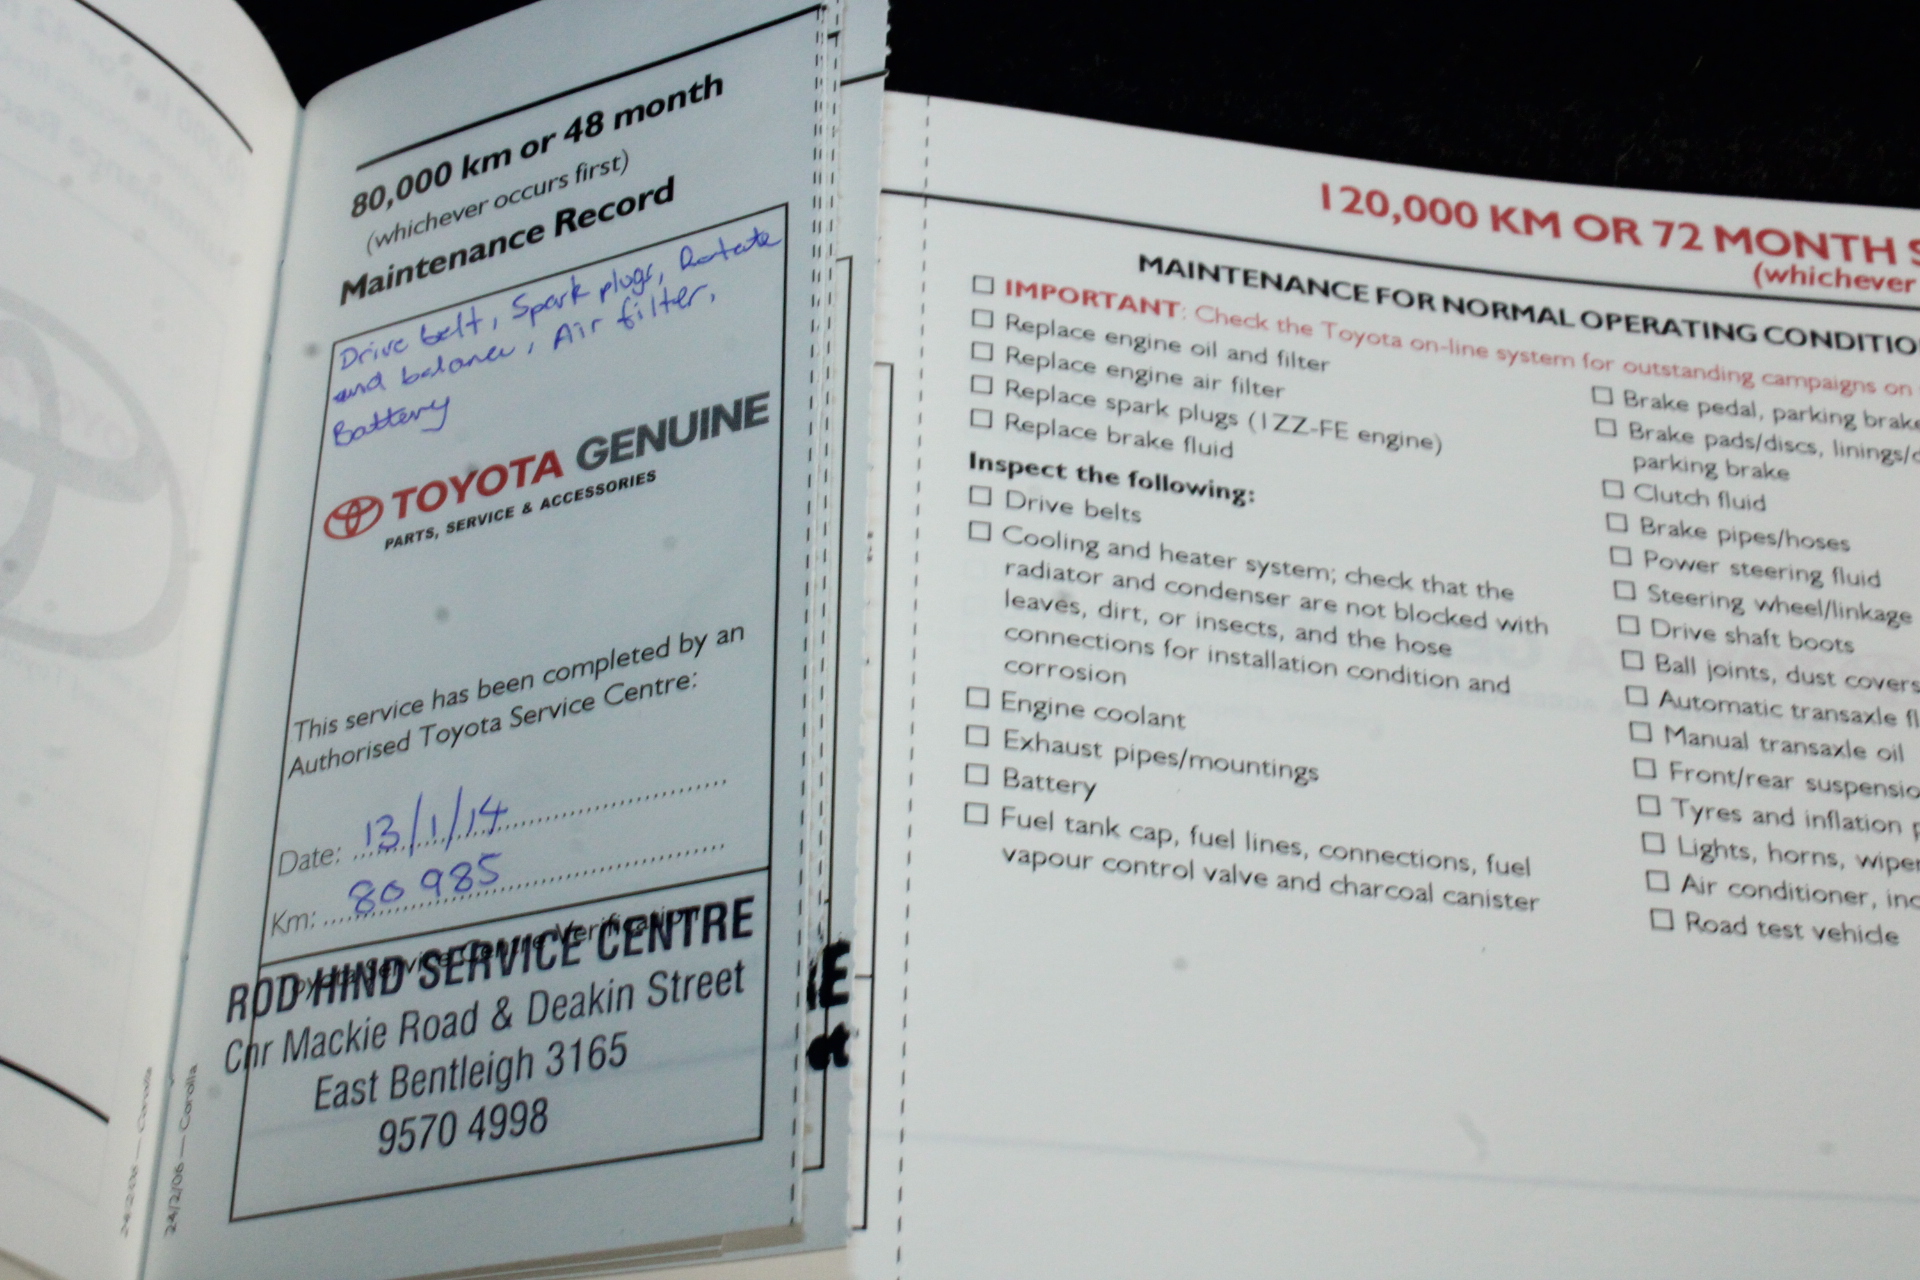 80,000 km or 48 month
(whichever occurs first)
Maintenance Record
Drive belt, Spark plugs, Rotate
and balance, Air filter,
Battery
TOYOTA GENUINE
PARTS, SERVICE & ACCESSORIES
This service has been completed by an
Authorised Toyota Service Centre:
Date: 13/1/14
Km: 80 985
ROD HIND SERVICE CENTRE
Cnr Mackie Road & Deakin Street
East Bentleigh 3165
9570 4998
24/2/06 — Corolla
120,000 KM OR 72 MONTH S
(whichever
MAINTENANCE FOR NORMAL OPERATING CONDITIO
IMPORTANT: Check the Toyota on-line system for outstanding campaigns on
Replace engine oil and filter
Replace engine air filter
Replace spark plugs (1ZZ-FE engine)
Replace brake fluid
Inspect the following:
Drive belts
Cooling and heater system; check that the
radiator and condenser are not blocked with
leaves, dirt, or insects, and the hose
connections for installation condition and
corrosion
Engine coolant
Exhaust pipes/mountings
Battery
Fuel tank cap, fuel lines, connections, fuel
vapour control valve and charcoal canister
Brake pedal, parking brake
Brake pads/discs, linings/d
parking brake
Clutch fluid
Brake pipes/hoses
Power steering fluid
Steering wheel/linkage
Drive shaft boots
Ball joints, dust covers
Automatic transaxle fl
Manual transaxle oil
Front/rear suspensio
Tyres and inflation p
Lights, horns, wiper
Air conditioner, inc
Road test vehicle